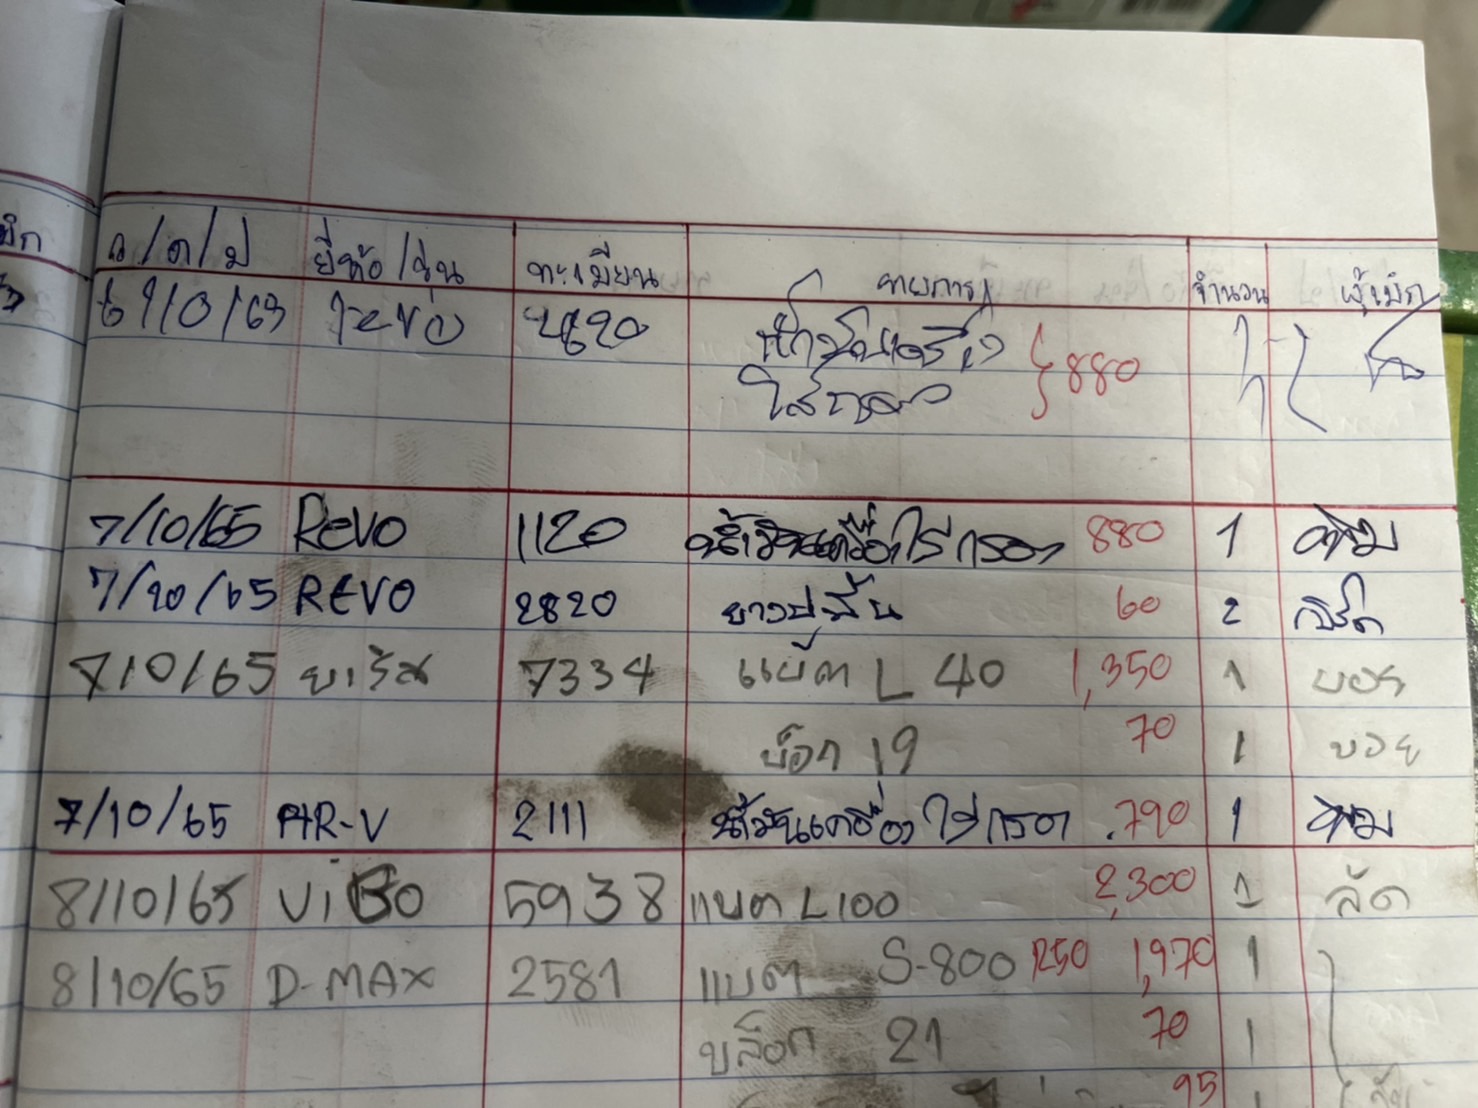 ว/ด/ป ยี่ห้อ/รุ่น ทะเบียน รายการ จำนวน ผู้เบิก
น้ำมันเครื่อง 880
ไส้กรอง
7/10/65 REVO 1120 น้ำมันเครื่อง ไส้กรอง 880 1
7/10/65 REVO 2820 60 2
7/10/65 ยาริส 7334 แบ๊ต L 40 1,350 1 บอย
บ๊อก 19 70 1 บอย
7/10/65 2111 น้ำมันเครื่อง ไส้กรอง 790 1
8/10/65 ViGO 5938 แบต L 100 2,300 1 ลัด
8/10/65 D-MAX 2581 แบต S-800 R50 1,970 1
บล็อก 21 70 1
95